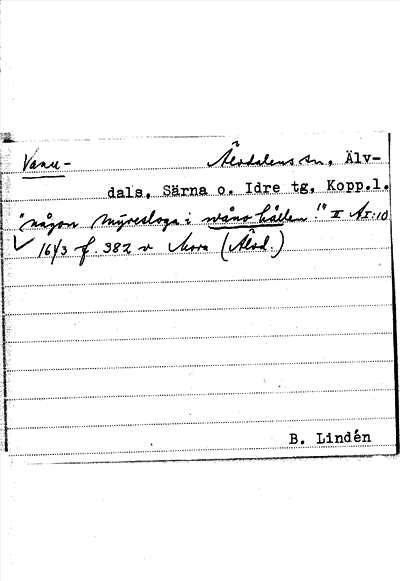 Vanu- Älvdalens sn, Älv-
dals, Särna o. Idre tg, Kopp.l.
"någon Myresloga i wåno hållen!" II Ar:10
1613 f. 382 v Mora (Älvd.)
B. Lindén